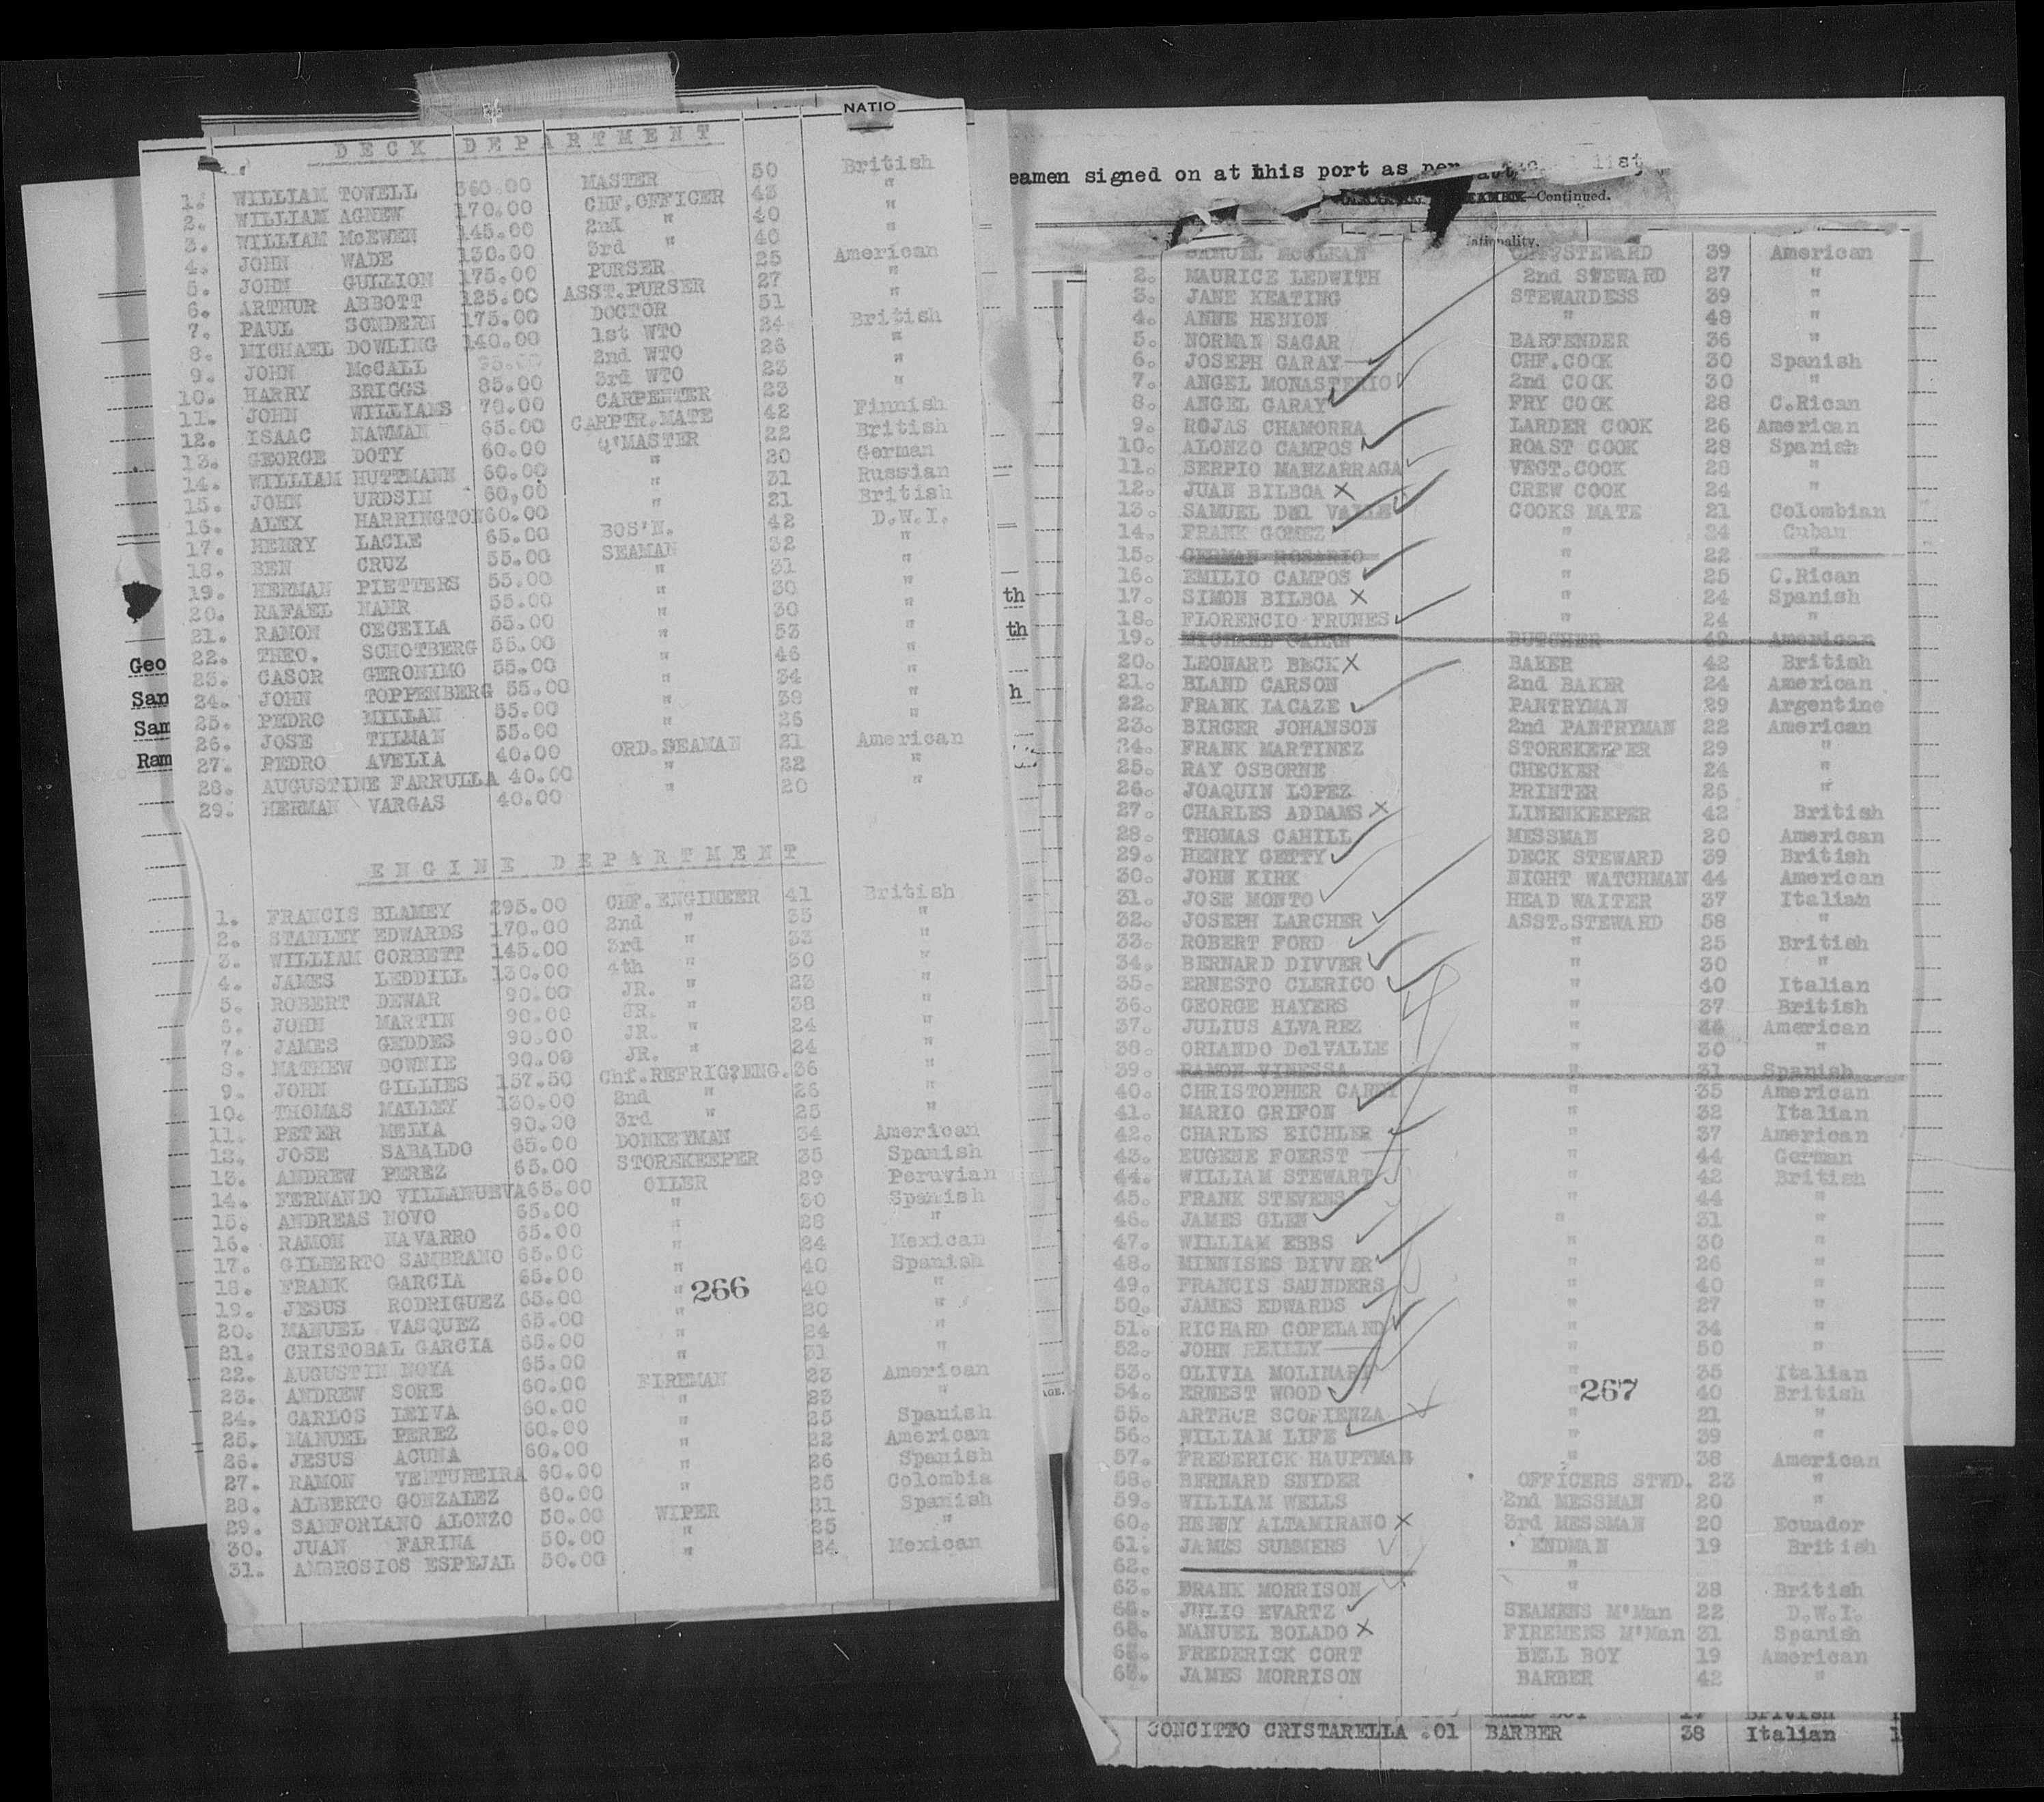 NATIO
DECK DEPARTMENT
1. WILLIAM TOWELL 360.00 MASTER 50 British
2. WILLIAM AGNEW 170.00 CHF.OFFICER 43 "
3. WILLIAM McEWEN 145.00 2nd " 40 "
4. JOHN WADE 130.00 3rd " 40 "
5. JOHN GULLION 175.00 PURSER 25 American
6. ARTHUR ABBOTT 125.00 ASST.PURSER 27 "
7. PAUL SONDERN 175.00 DOCTOR 51 "
8. MICHAEL DOWLING 140.00 1st WTO 24 British
9. JOHN McCALL 95.00 2nd WTO 26 "
10. HARRY BRIGGS 85.00 3rd WTO 23 "
11. JOHN WILLIAMS 70.00 CARPENTER 23 "
12. ISAAC NAWMAN 65.00 CARPTR.MATE 42 Finnish
13. GEORGE DOTY 60.00 Q'MASTER 22 British
14. WILLIAM HUTTMANN 60.00 " 20 German
15. JOHN URDSIN 60.00 " 31 Russian
16. ALEX HARRINGTON 60.00 " 21 British
17. HENRY LACLE 65.00 BOS'N. 42 D.W.I.
18. BEN CRUZ 55.00 SEAMAN 32 "
19. HERMAN PIETTERS 55.00 " 31 "
20. RAFAEL NAHR 55.00 " 30 "
21. RAMON CECEILA 55.00 " 30 "
22. THEO. SCHOTBERG 55.00 " 53 "
23. CASOR GERONIMO 55.00 " 46 "
24. JOHN TOPPENBERG 55.00 " 34 "
25. PEDRO MILLAN 55.00 " 38 "
26. JOSE TILMAN 55.00 " 26 "
27. PEDRO AVELIA 40.00 ORD.SEAMAN 21 American
28. AUGUSTINE FARRULLA 40.00 " 22 "
29. HERMAN VARGAS 40.00 " 20 "
ENGINE DEPARTMENT
1. FRANCIS BLAMEY 295.00 CHF.ENGINEER 41 British
2. STANLEY EDWARDS 170.00 2nd " 35 "
3. WILLIAM CORBETT 145.00 3rd " 33 "
4. JAMES LEDDILL 130.00 4th " 30 "
5. ROBERT DEWAR 90.00 JR. " 23 "
6. JOHN MARTIN 90.00 JR. " 38 "
7. JAMES GEDDES 90.00 JR. " 24 "
8. MATHEW DOWNIE 90.00 JR. " 24 "
9. JOHN GILLIES 157.50 Chf.REFRIG?ENG. 36 "
10. THOMAS MALLEY 130.00 2nd " 26 "
11. PETER MELIA 90.00 3rd " 25 "
12. JOSE SABALDO 65.00 DONKEYMAN 34 American
13. ANDREW PEREZ 65.00 STOREKEEPER 35 Spanish
14. FERNANDO VILLANUEVA 65.00 OILER 29 Peruvian
15. ANDREAS NOVO 65.00 " 30 Spanish
16. RAMON NAVARRO 65.00 " 28 "
17. GILBERTO SAMBRANO 65.00 " 24 Mexican
18. FRANK GARCIA 65.00 " 40 Spanish
19. JESUS RODRIGUEZ 65.00 " 40 "
20. MANUEL VASQUEZ 65.00 " 30 "
21. CRISTOBAL GARCIA 65.00 " 24 "
22. AUGUSTIN NOYA 65.00 " 31 "
23. ANDREW SORE 60.00 FIREMAN 23 American
24. CARLOS LEIVA 60.00 " 23 "
25. MANUEL PEREZ 60.00 " 25 Spanish
26. JESUS ACUNA 60.00 " 22 American
27. RAMON VENTUREIRA 60.00 " 26 Spanish
28. ALBERTO GONZALEZ 60.00 " 25 Colombia
29. SANFORIANO ALONZO 50.00 WIPER 21 Spanish
30. JUAN FARINA 50.00 " 25 "
31. AMBROSIOS ESPEJAL 50.00 " 24 Mexican
266
Geo
San
Sam
Ram
th
th
h
AGE.
eamen signed on at this port as per list
Continued.
Nationality.
1. SAMUEL McCLEAN CHF?STEWARD 39 American
2. MAURICE LEDWITH 2nd STEWARD 27 "
3. JANE KEATING STEWARDESS 39 "
4. ANNE HEHION " 48 "
5. NORMAN SAGAR BARTENDER 36 "
6. JOSEPH GARAY CHF.COOK 30 Spanish
7. ANGEL MONASTERIO 2nd COOK 30 "
8. ANGEL GARAY FRY COOK 28 C.Rican
9. ROJAS CHAMORRA LARDER COOK 26 American
10. ALONZO CAMPOS ROAST COOK 28 Spanish
11. SERPIO MANZARRAGA VEGT.COOK 28 "
12. JUAN BILBOA X CREW COOK 24 "
13. SAMUEL DEl VALLE COOKS MATE 21 Colombian
14. FRANK GOMEZ " 24 Cuban
15. GERMAN ROSARIO " 22 "
16. EMILIO CAMPOS " 25 C.Rican
17. SIMON BILBOA X " 24 Spanish
18. FLORENCIO FRUNES " 24 "
19. MICHAEL BUTCHER 49 American
20. LEONARD BECK X BAKER 42 British
21. BLAND CARSON 2nd BAKER 24 American
22. FRANK LACAZE PANTRYMAN 29 Argentine
23. BIRGER JOHANSON 2nd PANTRYMAN 22 American
24. FRANK MARTINEZ STOREKEEPER 29 "
25. RAY OSBORNE CHECKER 24 "
26. JOAQUIN LOPEZ PRINTER 25 "
27. CHARLES ADDAMS X LINENKEEPER 42 British
28. THOMAS CAHILL MESSMAN 20 American
29. HENRY GETTY DECK STEWARD 39 British
30. JOHN KIRK NIGHT WATCHMAN 44 American
31. JOSE MONTO HEAD WAITER 37 Italian
32. JOSEPH LARCHER ASST.STEWARD 58 "
33. ROBERT FORD " 25 British
34. BERNARD DIVVER " 30 "
35. ERNESTO CLERICO " 40 Italian
36. GEORGE HAYERS " 37 British
37. JULIUS ALVAREZ " American
38. ORLANDO DelVALLE " 30 "
39. RAMON VINESSA " 31 Spanish
40. CHRISTOPHER CAREY " 35 American
41. MARIO GRIFON " 32 Italian
42. CHARLES EICHLER " 37 American
43. EUGENE FOERST " 44 German
44. WILLIAM STEWART " 42 British
45. FRANK STEVENS " 44 "
46. JAMES GLEN " 31 "
47. WILLIAM EBBS " 30 "
48. MINNISES DIVVER " 26 "
49. FRANCIS SAUNDERS " 40 "
50. JAMES EDWARDS " 27 "
51. RICHARD COPELAND " 34 "
52. JOHN REILLY " 50 "
53. OLIVIA MOLINARY " 35 Italian
54. ERNEST WOOD " 40 British
55. ARTHUR SCOFIENZA " 21 "
56. WILLIAM LIFE " 39 "
57. FREDERICK HAUPTMAN " 38 American
58. BERNARD SNYDER OFFICERS STWD. 23 "
59. WILLIAM WELLS 2nd MESSMAN 20 "
60. HENRY ALTAMIRANO X 3rd MESSMAN 20 Ecuador
61. JAMES SUMMERS ENDMAN 19 British
62. "
63. FRANK MORRISON " 38 British
64. JULIO EVARTZ SEAMENS M'Man 22 D.W.I.
65. MANUEL BOLADO X FIREMENS M'Man 31 Spanish
66. FREDERICK CORT BELL BOY 19 American
67. JAMES MORRISON BARBER 42 "
267
CONCITTO CRISTARELLA .01 BARBER 38 Italian